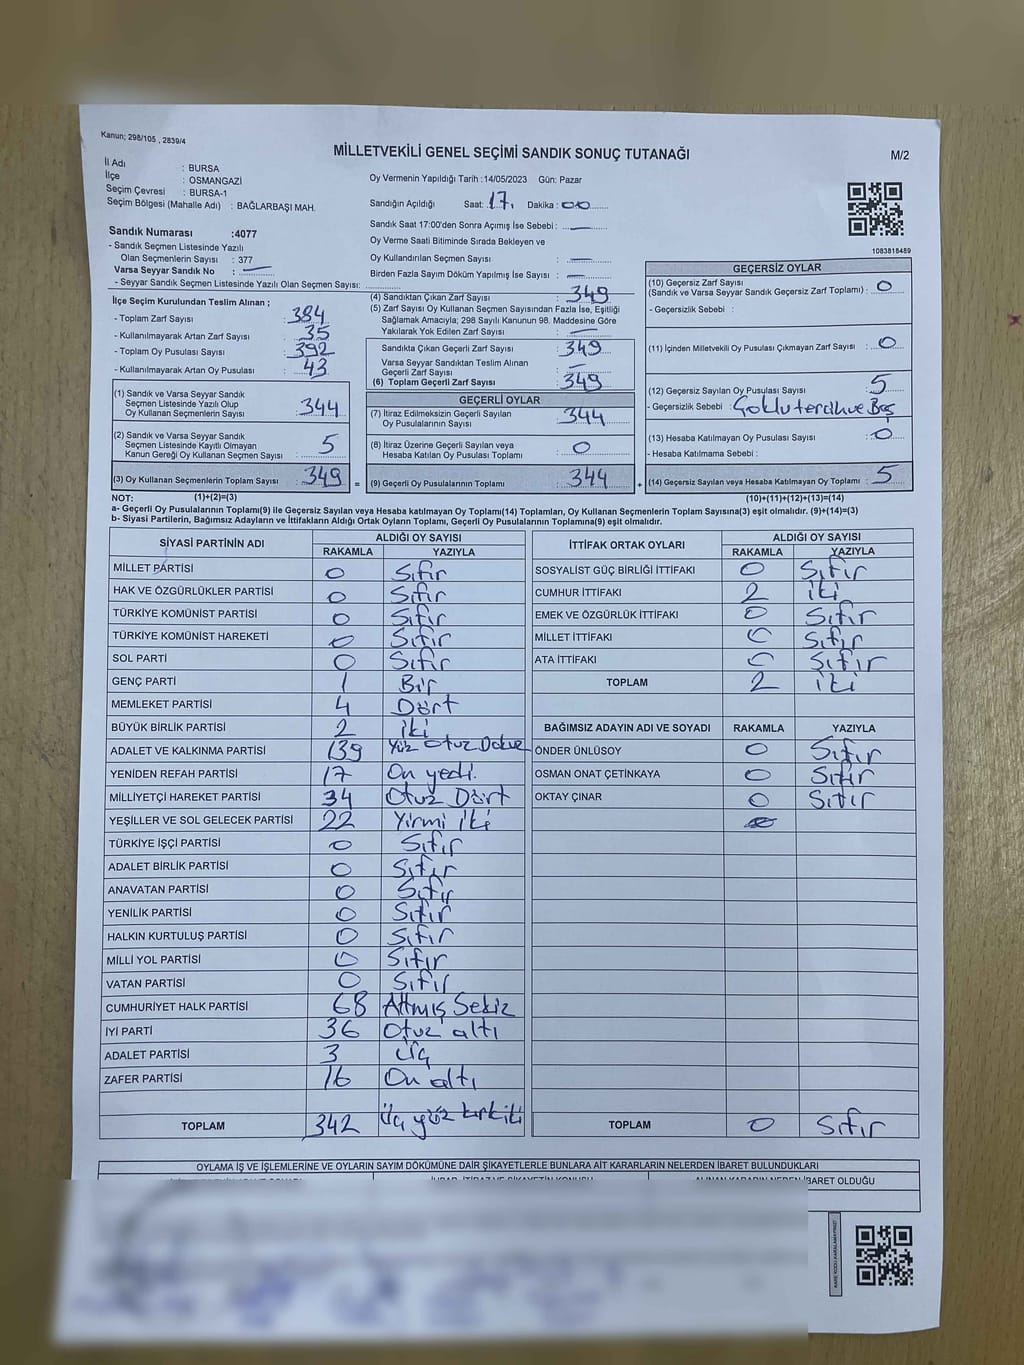 Kanun; 298/105 , 2839/4
MİLLETVEKİLİ GENEL SEÇİMİ SANDIK SONUÇ TUTANAĞI
M/2
İl Adı : BURSA
İlçe : OSMANGAZİ
Seçim Çevresi : BURSA-1
Seçim Bölgesi (Mahalle Adı) : BAĞLARBAŞI MAH.
Sandık Numarası :4077
- Sandık Seçmen Listesinde Yazılı
Olan Seçmenlerin Sayısı : 377
Varsa Seyyar Sandık No : —
- Seyyar Sandık Seçmen Listesinde Yazılı Olan Seçmen Sayısı:
Oy Vermenin Yapıldığı Tarih :14/05/2023 Gün: Pazar
Sandığın Açıldığı Saat: 17. Dakika : 00
Sandık Saat 17:00'den Sonra Açımış İse Sebebi : —
Oy Verme Saati Bitiminde Sırada Bekleyen ve
Oy Kullandırılan Seçmen Sayısı : —
Birden Fazla Sayım Döküm Yapılmış İse Sayısı : —
1083818489
İlçe Seçim Kurulundan Teslim Alınan ;
- Toplam Zarf Sayısı : 384
- Kullanılmayarak Artan Zarf Sayısı : 35
- Toplam Oy Pusulası Sayısı : 392
- Kullanılmayarak Artan Oy Pusulası : 43
(1) Sandık ve Varsa Seyyar Sandık
Seçmen Listesinde Yazılı Olup
Oy Kullanan Seçmenlerin Sayısı : 344
(2) Sandık ve Varsa Seyyar Sandık
Seçmen Listesinde Kayıtlı Olmayan
Kanun Gereği Oy Kullanan Seçmen Sayısı : 5
(3) Oy Kullanan Seçmenlerin Toplam Sayısı : 349 =
(4) Sandıktan Çıkan Zarf Sayısı : 349
(5) Zarf Sayısı Oy Kullanan Seçmen Sayısından Fazla İse, Eşitliği
Sağlamak Amacıyla; 298 Sayılı Kanunun 98. Maddesine Göre
Yakılarak Yok Edilen Zarf Sayısı : —
Sandıkta Çıkan Geçerli Zarf Sayısı : 349
Varsa Seyyar Sandıktan Teslim Alınan
Geçerli Zarf Sayısı : —
(6) Toplam Geçerli Zarf Sayısı : 349
GEÇERLİ OYLAR
(7) İtiraz Edilmeksizin Geçerli Sayılan
Oy Pusulalarının Sayısı : 344
(8) İtiraz Üzerine Geçerli Sayılan veya
Hesaba Katılan Oy Pusulası Toplamı : 0
(9) Geçerli Oy Pusulalarının Toplamı : 344 +
GEÇERSİZ OYLAR
(10) Geçersiz Zarf Sayısı
(Sandık ve Varsa Seyyar Sandık Geçersiz Zarf Toplamı) : 0
- Geçersizlik Sebebi :
(11) İçinden Milletvekili Oy Pusulası Çıkmayan Zarf Sayısı : 0
(12) Geçersiz Sayılan Oy Pusulası Sayısı : 5
- Geçersizlik Sebebi : Çoklu tercih ve Boş
(13) Hesaba Katılmayan Oy Pusulası Sayısı : 0
- Hesaba Katılmama Sebebi :
(14) Geçersiz Sayılan veya Hesaba Katılmayan Oy Toplamı : 5
NOT: (1)+(2)=(3) (10)+(11)+(12)+(13)=(14)
a- Geçerli Oy Pusulalarının Toplamı(9) ile Geçersiz Sayılan veya Hesaba katılmayan Oy Toplamı(14) Toplamları, Oy Kullanan Seçmenlerin Toplam Sayısına(3) eşit olmalıdır. (9)+(14)=(3)
b- Siyasi Partilerin, Bağımsız Adayların ve İttifakların Aldığı Ortak Oyların Toplamı, Geçerli Oy Pusulalarının Toplamına(9) eşit olmalıdır.
SİYASİ PARTİNİN ADI ALDIĞI OY SAYISI
RAKAMLA YAZIYLA
MİLLET PARTİSİ 0 Sıfır
HAK VE ÖZGÜRLÜKLER PARTİSİ 0 Sıfır
TÜRKİYE KOMÜNİST PARTİSİ 0 Sıfır
TÜRKİYE KOMÜNİST HAREKETİ 0 Sıfır
SOL PARTİ 0 Sıfır
GENÇ PARTİ 1 Bir
MEMLEKET PARTİSİ 4 Dört
BÜYÜK BİRLİK PARTİSİ 2 iki
ADALET VE KALKINMA PARTİSİ 139 Yüz Otuz Dokuz
YENİDEN REFAH PARTİSİ 17 On yedi.
MİLLİYETÇİ HAREKET PARTİSİ 34 Otuz Dört
YEŞİLLER VE SOL GELECEK PARTİSİ 22 Yirmi iki
TÜRKİYE İŞÇİ PARTİSİ 0 Sıfır
ADALET BİRLİK PARTİSİ 0 Sıfır
ANAVATAN PARTİSİ 0 Sıfır
YENİLİK PARTİSİ 0 Sıfır
HALKIN KURTULUŞ PARTİSİ 0 Sıfır
MİLLİ YOL PARTİSİ 0 Sıfır
VATAN PARTİSİ 0 Sıfır
CUMHURİYET HALK PARTİSİ 68 Altmış Sekiz
İYİ PARTİ 36 Otuz altı
ADALET PARTİSİ 3 Üç
ZAFER PARTİSİ 16 On altı
TOPLAM 342 üç yüz kırkiki
İTTİFAK ORTAK OYLARI ALDIĞI OY SAYISI
RAKAMLA YAZIYLA
SOSYALİST GÜÇ BİRLİĞİ İTTİFAKI 0 Sıfır
CUMHUR İTTİFAKI 2 iki
EMEK VE ÖZGÜRLÜK İTTİFAKI 0 Sıfır
MİLLET İTTİFAKI 0 Sıfır
ATA İTTİFAKI 0 Sıfır
TOPLAM 2 iki
BAĞIMSIZ ADAYIN ADI VE SOYADI RAKAMLA YAZIYLA
ÖNDER ÜNLÜSOY 0 Sıfır
OSMAN ONAT ÇETİNKAYA 0 Sıfır
OKTAY ÇINAR 0 Sıfır
TOPLAM 0 Sıfır
OYLAMA İŞ VE İŞLEMLERİNE VE OYLARIN SAYIM DÖKÜMÜNE DAİR ŞİKAYETLERLE BUNLARA AİT KARARLARIN NELERDEN İBARET BULUNDUKLARI